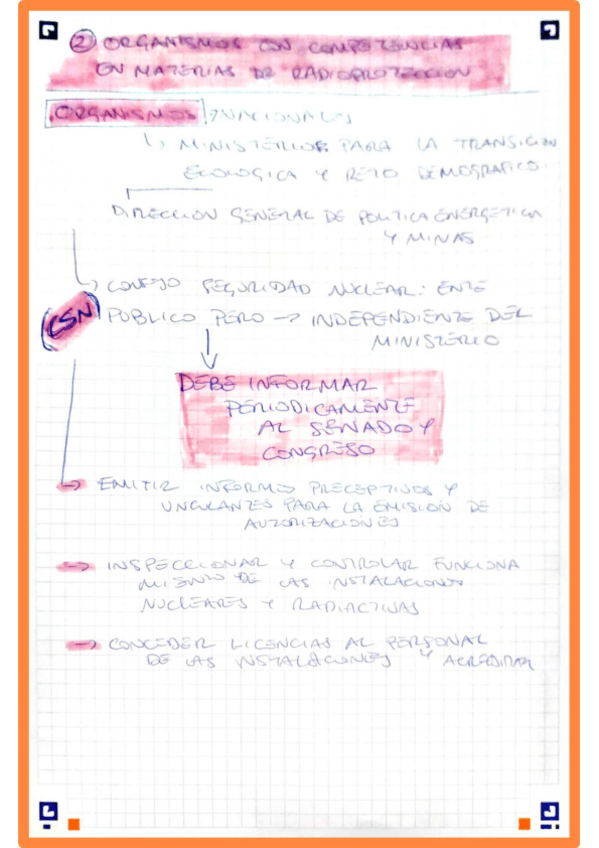 ② ORGANISMOS CON COMPETENCIAS
EN MATERIAS DE RADIOPROTECCION
ORGANISMOS NACIONALES
↳ MINISTERIOS PARA LA TRANSICION
ECOLOGICA Y RETO DEMOGRAFICO.
DIRECCION GENERAL DE POLITICA ENERGETICA
Y MINAS
↳ CONSEJO SEGURIDAD NUCLEAR: ENTE
CSN
PUBLICO PERO → INDEPENDIENTE DEL
MINISTERIO
DEBE INFORMAR
PERIODICAMENTE
AL SENADO Y
CONGRESO
→ EMITIR INFORMES PRECEPTIVOS Y
VINCULANTES PARA LA EMISION DE
AUTORIZACIONES
→ INSPECCIONAR Y CONTROLAR FUNCIONA
MIENTO DE LAS INSTALACIONES
NUCLEARES Y RADIACTIVAS
→ CONCEDER LICENCIAS AL PERSONAL
DE LAS INSTALACIONES Y ACREDITAR